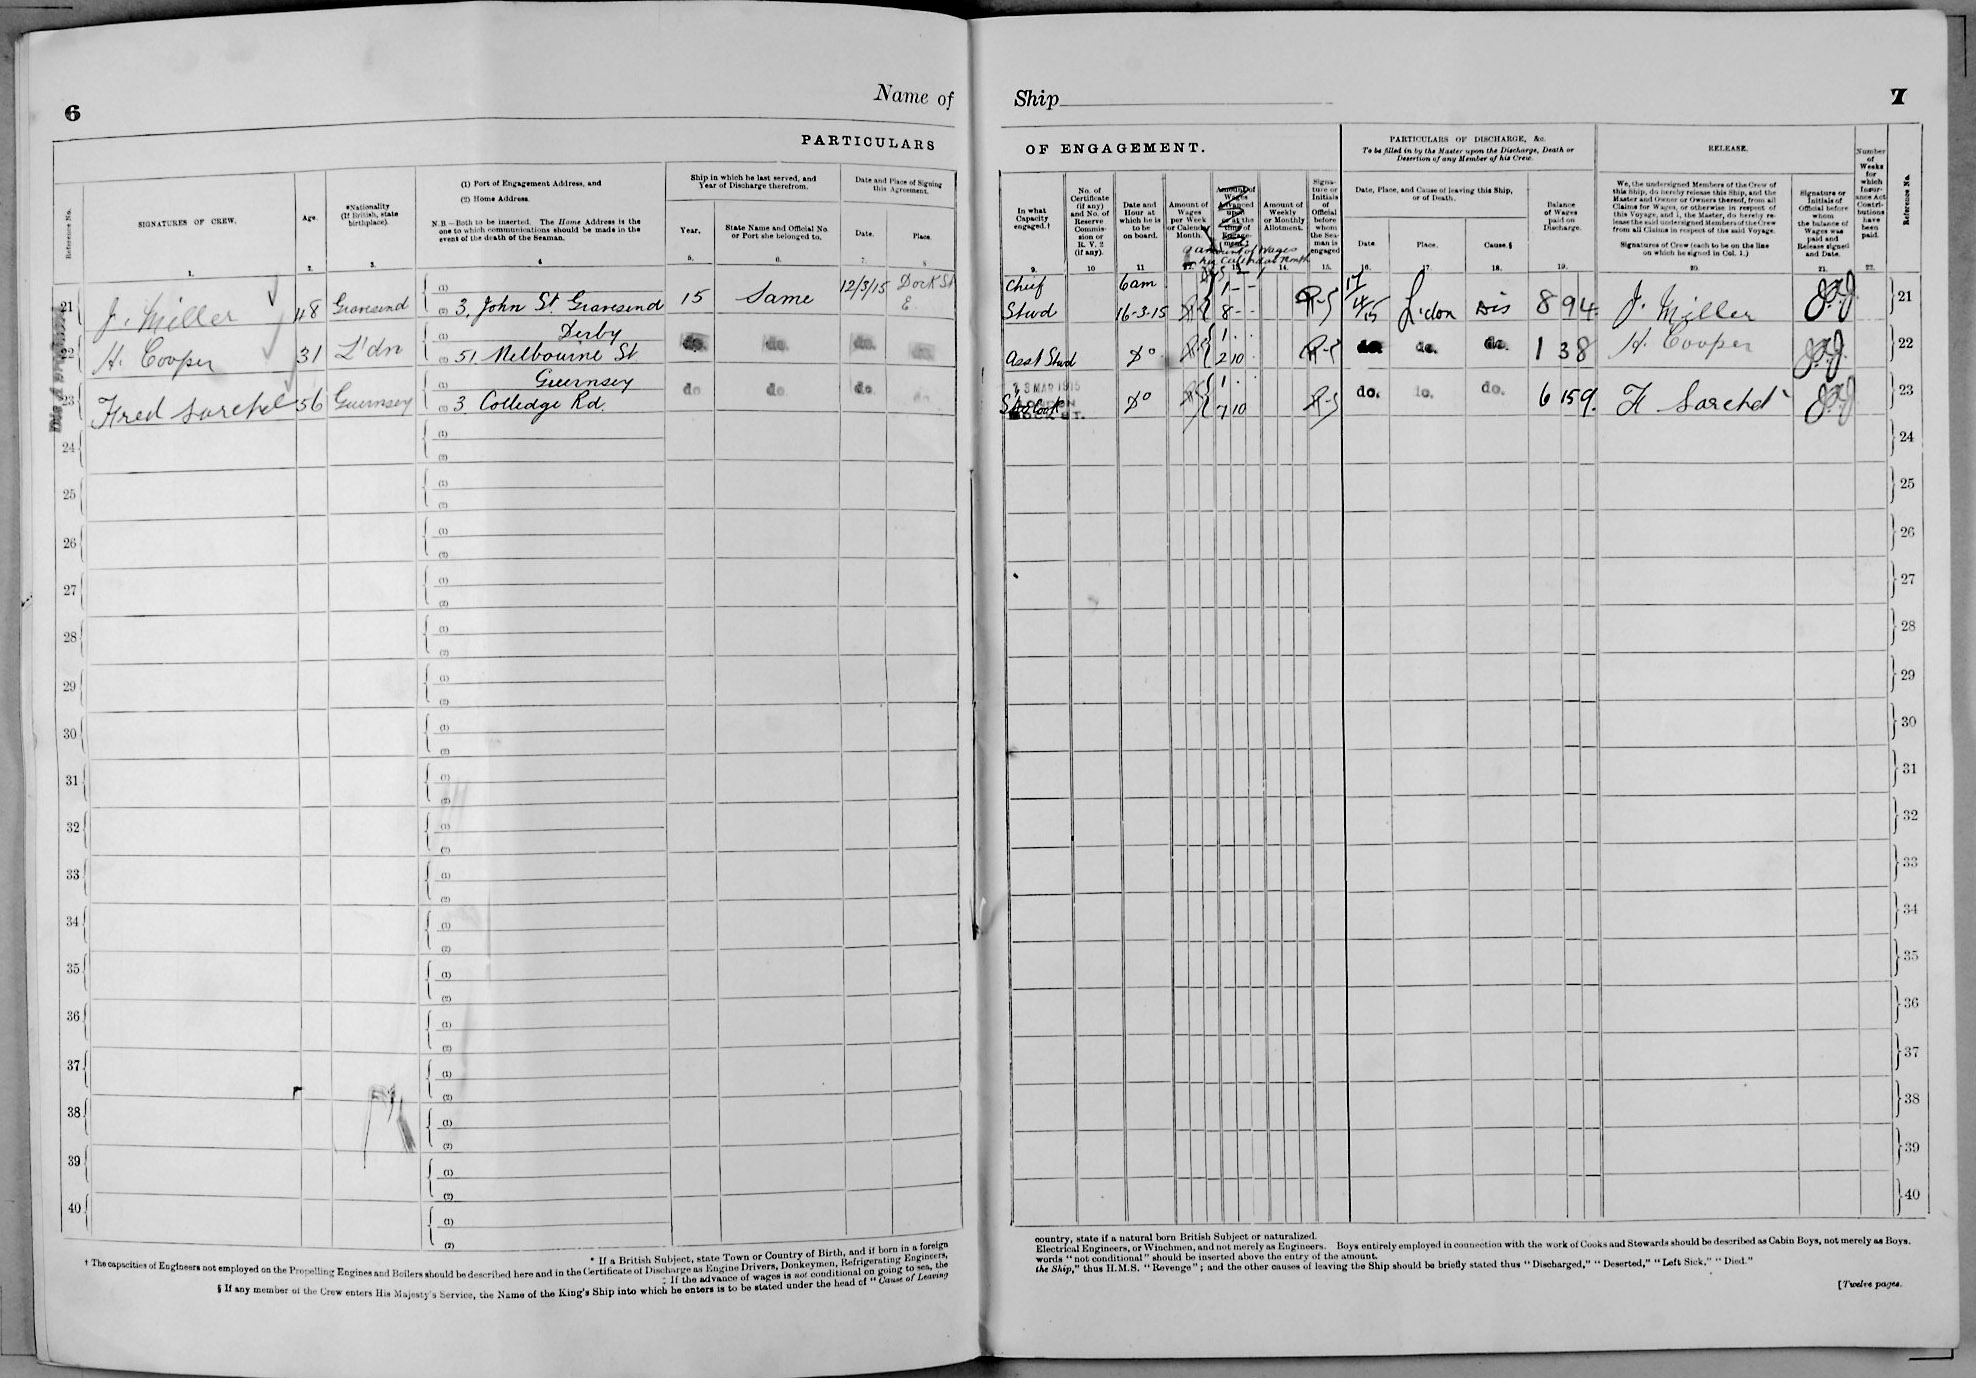 6
Name of
PARTICULARS
Reference No.
SIGNATURES OF CREW.
Age.
*Nationality
(If British, state
birthplace).
(1) Port of Engagement Address, and
(2) Home Address.
N.B.—Both to be inserted. The Home Address is the
one to which communications should be made in the
event of the death of the Seaman.
Ship in which he last served, and
Year of Discharge therefrom.
Year.
State Name and Official No.
or Port she belonged to.
Date and Place of Signing
this Agreement.
Date.
Place.
1. 2. 3. 4 5. 6. 7. 8
21 J. Miller 48 Gravesend (1)
(2) 3, John St. Gravesend 15 Same 12/3/15 Dock St
E.
H. Cooper 31 L'dn (1) Derby
(2) 51 Melbourne St do. do. do. do.
Fred Sarchet 56 Guernsey (1) Guernsey
(2) 3 Colledge Rd. do do. do. do.
24 (1)
(2)
25 (1)
(2)
26 (1)
(2)
27 (1)
(2)
28 (1)
(2)
29 (1)
(2)
30 (1)
(2)
31 (1)
(2)
32 (1)
(2)
33 (1)
(2)
34 (1)
(2)
35 (1)
(2)
36 (1)
(2)
37 (1)
(2)
38 (1)
(2)
39 (1)
(2)
40 (1)
(2)
* If a British Subject, state Town or Country of Birth, and if born in a foreign
† The capacities of Engineers not employed on the Propelling Engines and Boilers should be described here and in the Certificate of Discharge as Engine Drivers, Donkeymen, Refrigerating Engineers,
‡ If the advance of wages is not conditional on going to sea, the
§ If any member of the Crew enters His Majesty's Service, the Name of the King's Ship into which he enters is to be stated under the head of "Cause of Leaving
Ship
7
OF ENGAGEMENT.
In what
Capacity
engaged.†
No. of
Certificate
(if any)
and No. of
Reserve
Commis-
sion or
R. V. 2
(if any).
Date and
Hour at
which he is
to be
on board.
Amount of
Wages
per Week
or Calendar
Month.
Amount of
Wages
Advanced
upon
or at the
time of
Engage-
ment.‡
Amount of Wages
per Calendar Month
Amount of
Weekly
or Monthly
Allotment.
Signa-
ture or
Initials
of
Official
before
whom
the Sea-
man is
engaged
PARTICULARS OF DISCHARGE, &c.
To be filled in by the Master upon the Discharge, Death or
Desertion of any Member of his Crew.
Date, Place, and Cause of leaving this Ship,
or of Death.
Date.
Place.
Cause.§
Balance
of Wages
paid on
Discharge.
RELEASE.
We, the undersigned Members of the Crew of
this Ship, do hereby release this Ship, and the
Master and Owner or Owners thereof, from all
Claims for Wages, or otherwise in respect of
this Voyage, and I, the Master, do hereby re-
lease the said undersigned Members of the Crew
from all Claims in respect of the said Voyage.
Signatures of Crew (each to be on the line
on which he signed in Col. 1.)
Signature or
Initials of
Official before
whom
the balance of
Wages was
paid and
Release signed
and Date.
Number
of
Weeks
for
which
Insur-
ance Act
Contri-
butions
have
been
paid.
Reference No.
9. 10 11 12. 13. 14. 15. 16. 17. 18. 19. 20. 21. 22.
Chief 6am 1 - -
Stwd 16-3-15 8 - - 17/4/15 L'don Dis 8 9 4 J. Miller 21
1
Asst Stwd Do 2 10 do. do. do. 1 3 8 H. Cooper 22
MAR 1915
Cook Do 1
7 10 do. do. do. 6 15 9. F Sarchet 23
24
25
26
27
28
29
30
31
32
33
34
35
36
37
38
39
40
country, state if a natural born British Subject or naturalized.
Electrical Engineers, or Winchmen, and not merely as Engineers. Boys entirely employed in connection with the work of Cooks and Stewards should be described as Cabin Boys, not merely as Boys.
words "not conditional" should be inserted above the entry of the amount.
the Ship," thus H.M.S. "Revenge"; and the other causes of leaving the Ship should be briefly stated thus "Discharged," "Deserted," "Left Sick," "Died."
[Twelve pages.